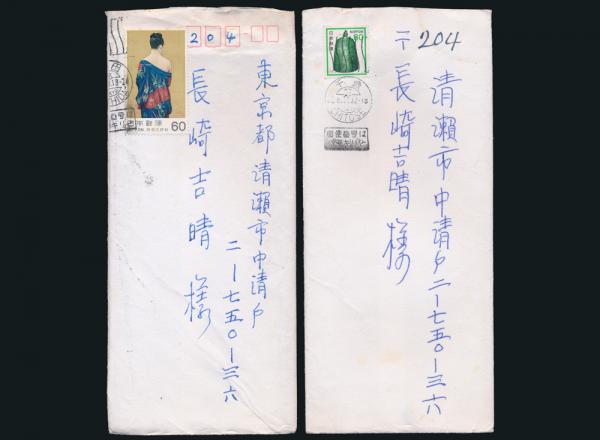 204
東京都清瀬市中清戸
二ー七五〇ー三六
長崎吉晴様
日本郵便
60
〒204
清瀬市中清戸二ー七五〇ー三六
長崎吉晴様
日本郵便
NIPPON
60
郵便番号は